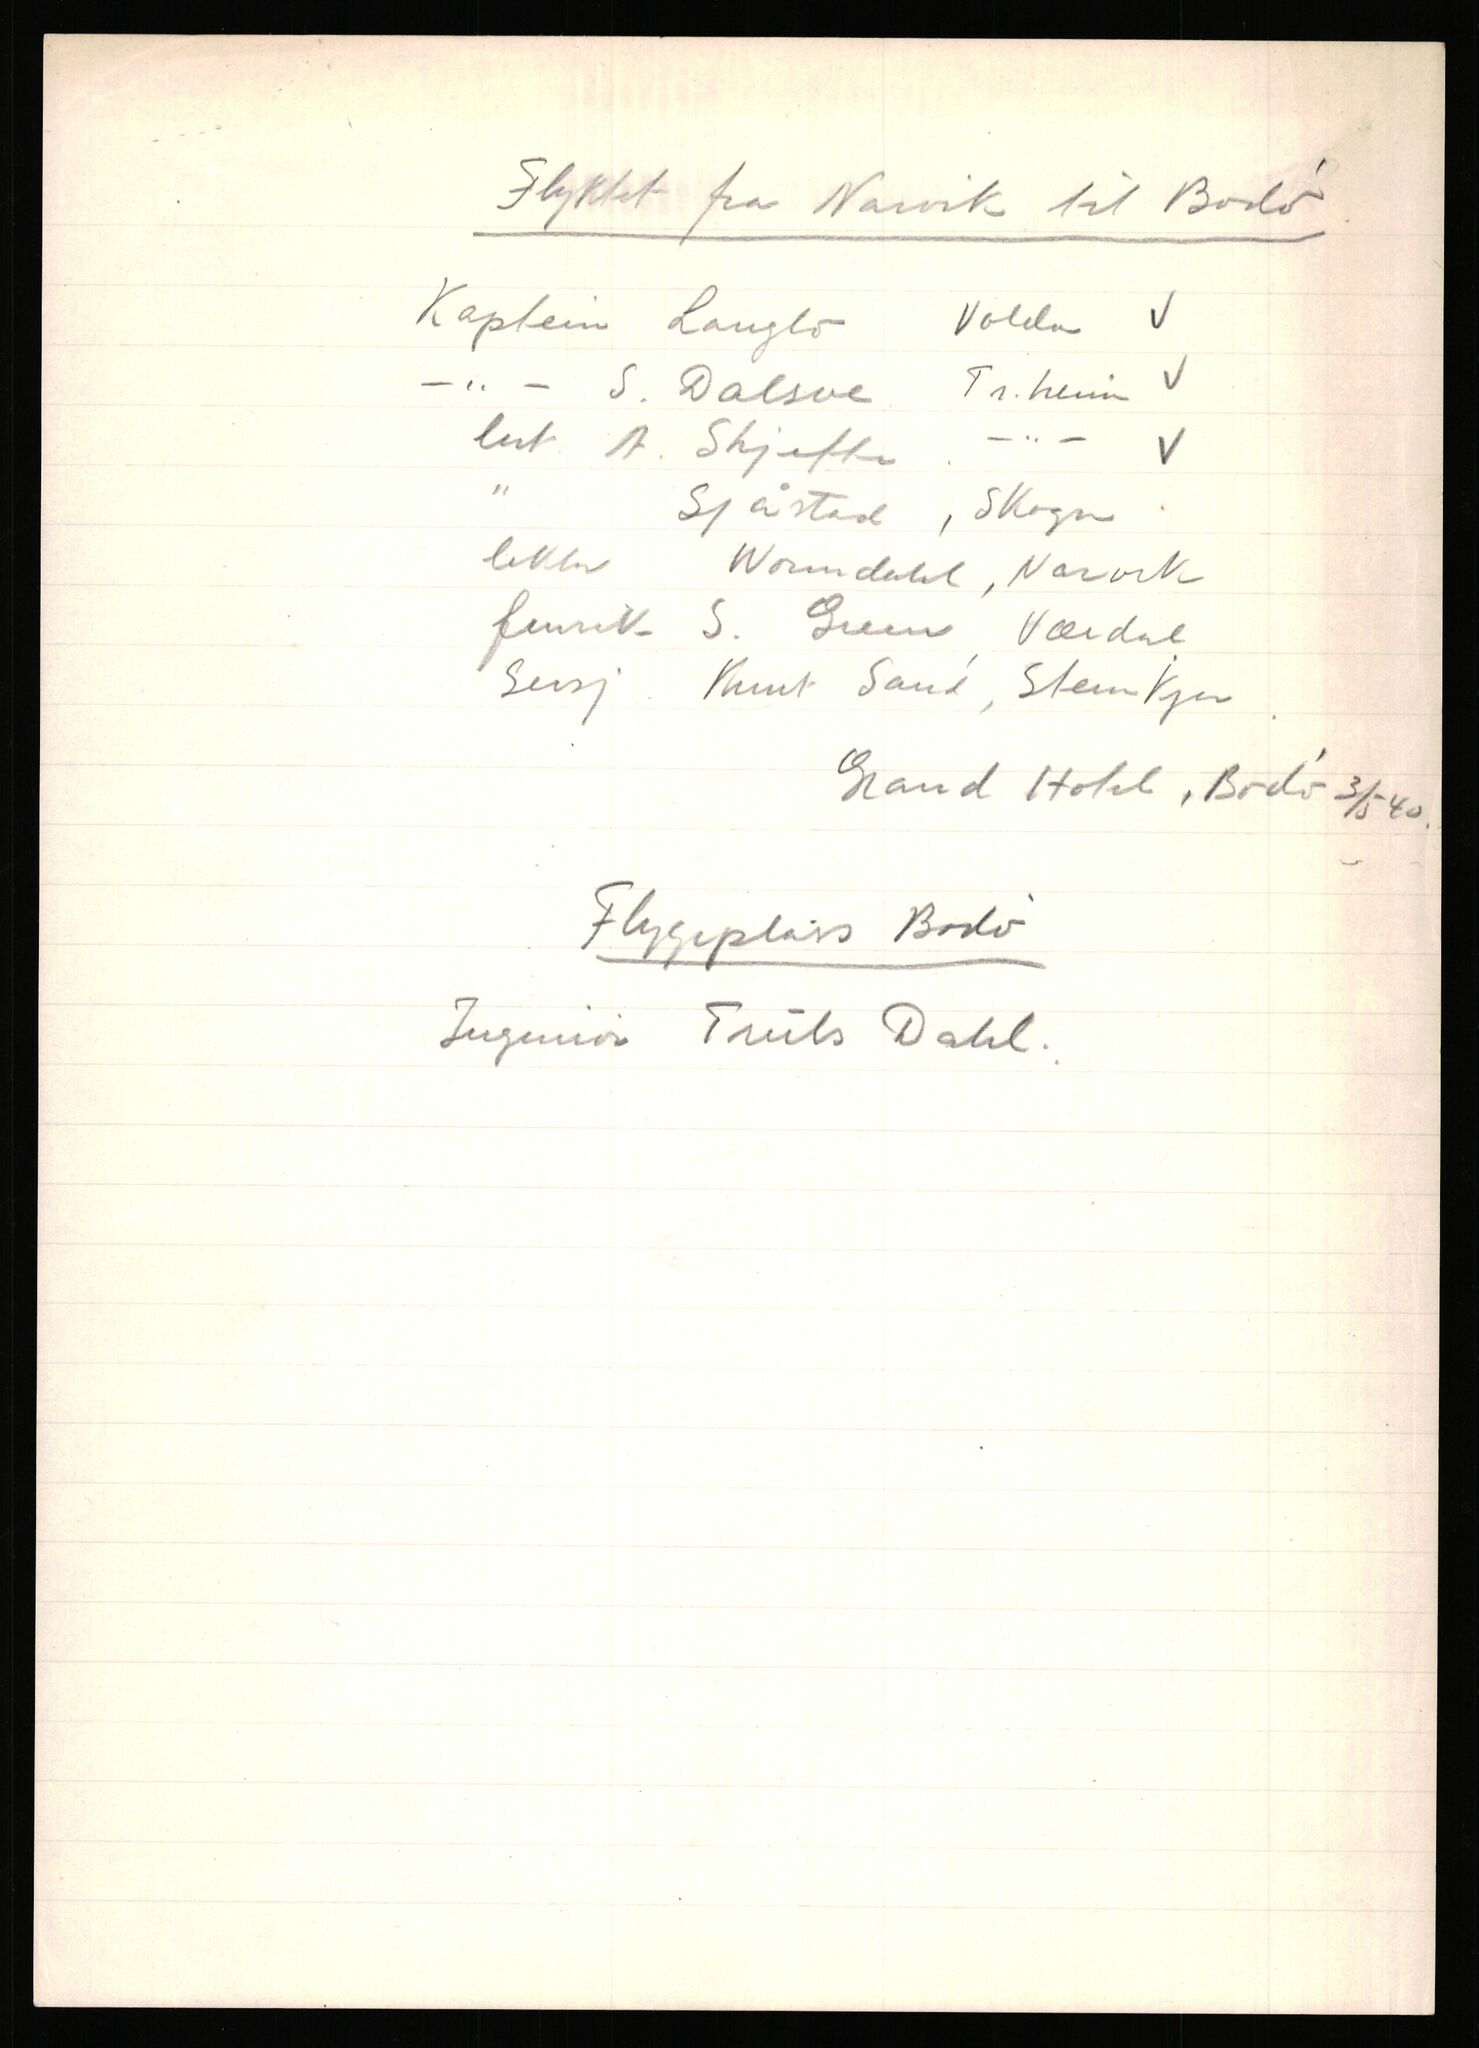 Flyktet fra Narvik til Bodó
Kaptein Langlo Volda V
-"- S. Dalsve Tr.heim V
lut. A. Skjefte -"- V
" Sjåstad, Skogn
lektor Wormdahl, Narvik
fenrik S. Green, Værdal
Sersj. Knut Sand, Steinkjer
Grand Hotel, Bodó 3/5-40.
Flygeplass Bodó
Ingeniör Truls Dahl.